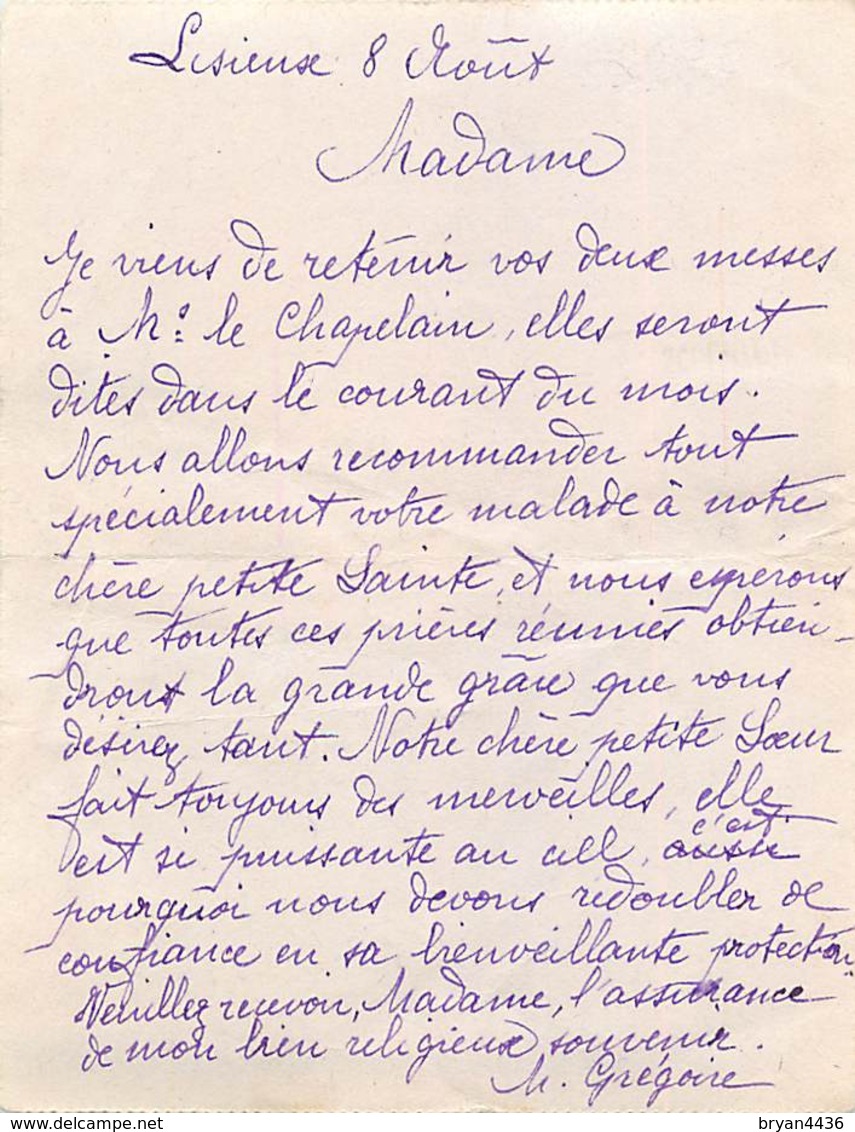 Lisieux 8 Août
Madame
Je viens de retenir vos deux messes
à Mr. le Chapelain, elles seront
dites dans le courant du mois.
Nous allons recommander tout
spécialement votre malade à notre
chère petite Sainte, et nous espérons
que toutes ces prières réunies obtien-
dront la grande grâce que vous
désirez tant. Notre chère petite Sœur
fait toujours des merveilles, elle
est si puissante au ciel, aussi c'est
pourquoi nous devons redoubler de
confiance en sa bienveillante protection.
Veuillez recevoir, Madame, l'assurance
de mon bien religieux souvenir.
M. Grégoire
bryan4436